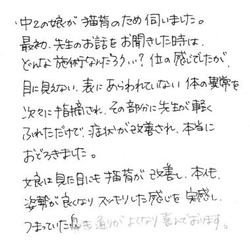 中2の娘が猫背のため伺いました。
最初、先生のお話をお聞きした時は、
どんな施術なんだろう…？位の感じでしたが、
目に見えない、表にあらわれていない体の異常を
次々に指摘され、その部分に先生が軽く
ふれただけで、症状が改善され、本当に
おどろきました。
娘は見た目にも猫背が改善し、本人も、
姿勢が良くなりスッキリした感じを実感し、
つまっていた
通りがよくなり喜んでおります。